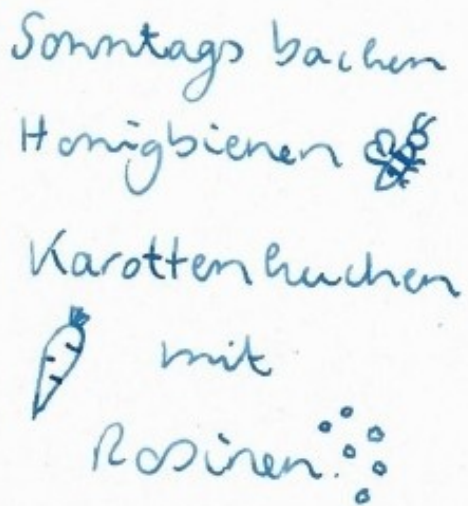 Sonntags backen
Honigbienen
Karottenkuchen
mit
Rosinen.